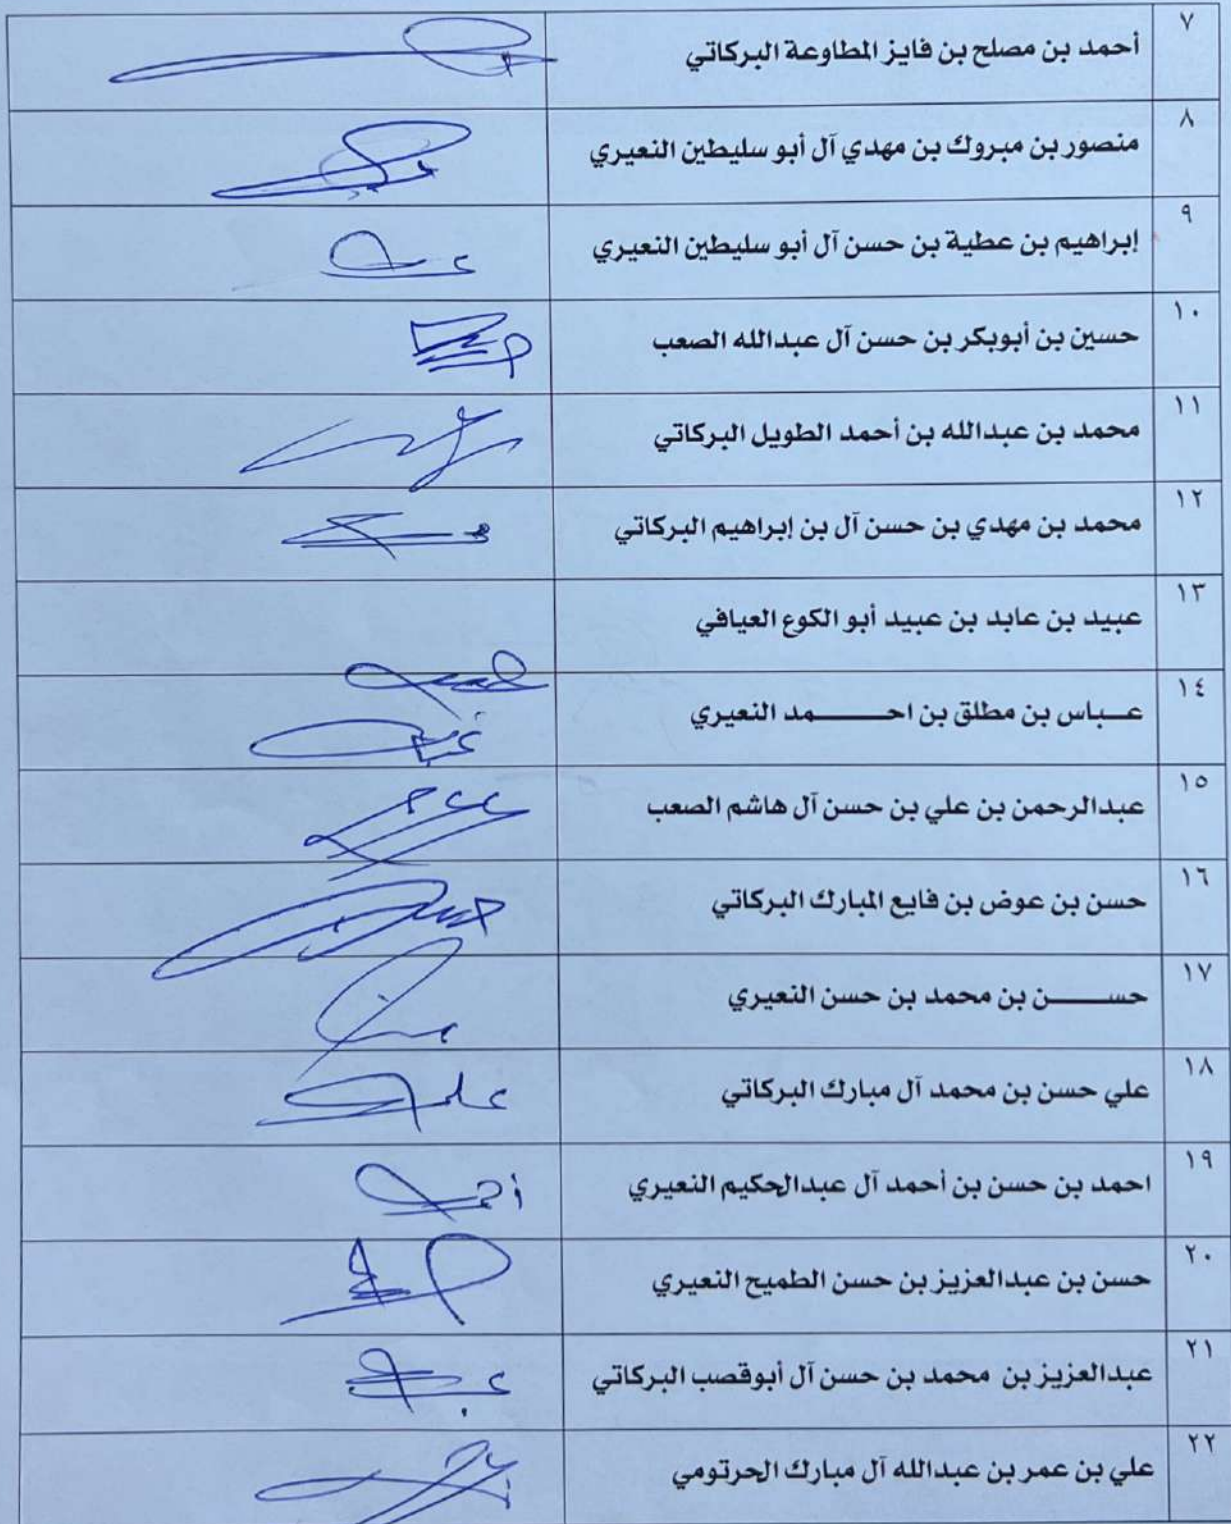 ٧ أحمد بن مصلح بن فايز المطاوعة البركاتي
٨ منصور بن مبروك بن مهدي آل أبو سليطين النعيري
٩ إبراهيم بن عطية بن حسن آل أبو سليطين النعيري
١٠ حسين بن أبوبكر بن حسن آل عبدالله الصعب
١١ محمد بن عبدالله بن أحمد الطويل البركاتي
١٢ محمد بن مهدي بن حسن آل بن إبراهيم البركاتي
١٣ عبيد بن عابد بن عبيد أبو الكوع العيافي
١٤ عـــباس بن مطلق بن احـــــــمد النعيري
١٥ عبدالرحمن بن علي بن حسن آل هاشم الصعب
١٦ حسن بن عوض بن فايع المبارك البركاتي
١٧ حســـــــن بن محمد بن حسن النعيري
١٨ علي حسن بن محمد آل مبارك البركاتي علي
١٩ احمد بن حسن بن أحمد آل عبدالحكيم النعيري
٢٠ حسن بن عبدالعزيز بن حسن الطميح النعيري
٢١ عبدالعزيز بن محمد بن حسن آل أبوقصب البركاتي
٢٢ علي بن عمر بن عبدالله آل مبارك الحرتومي